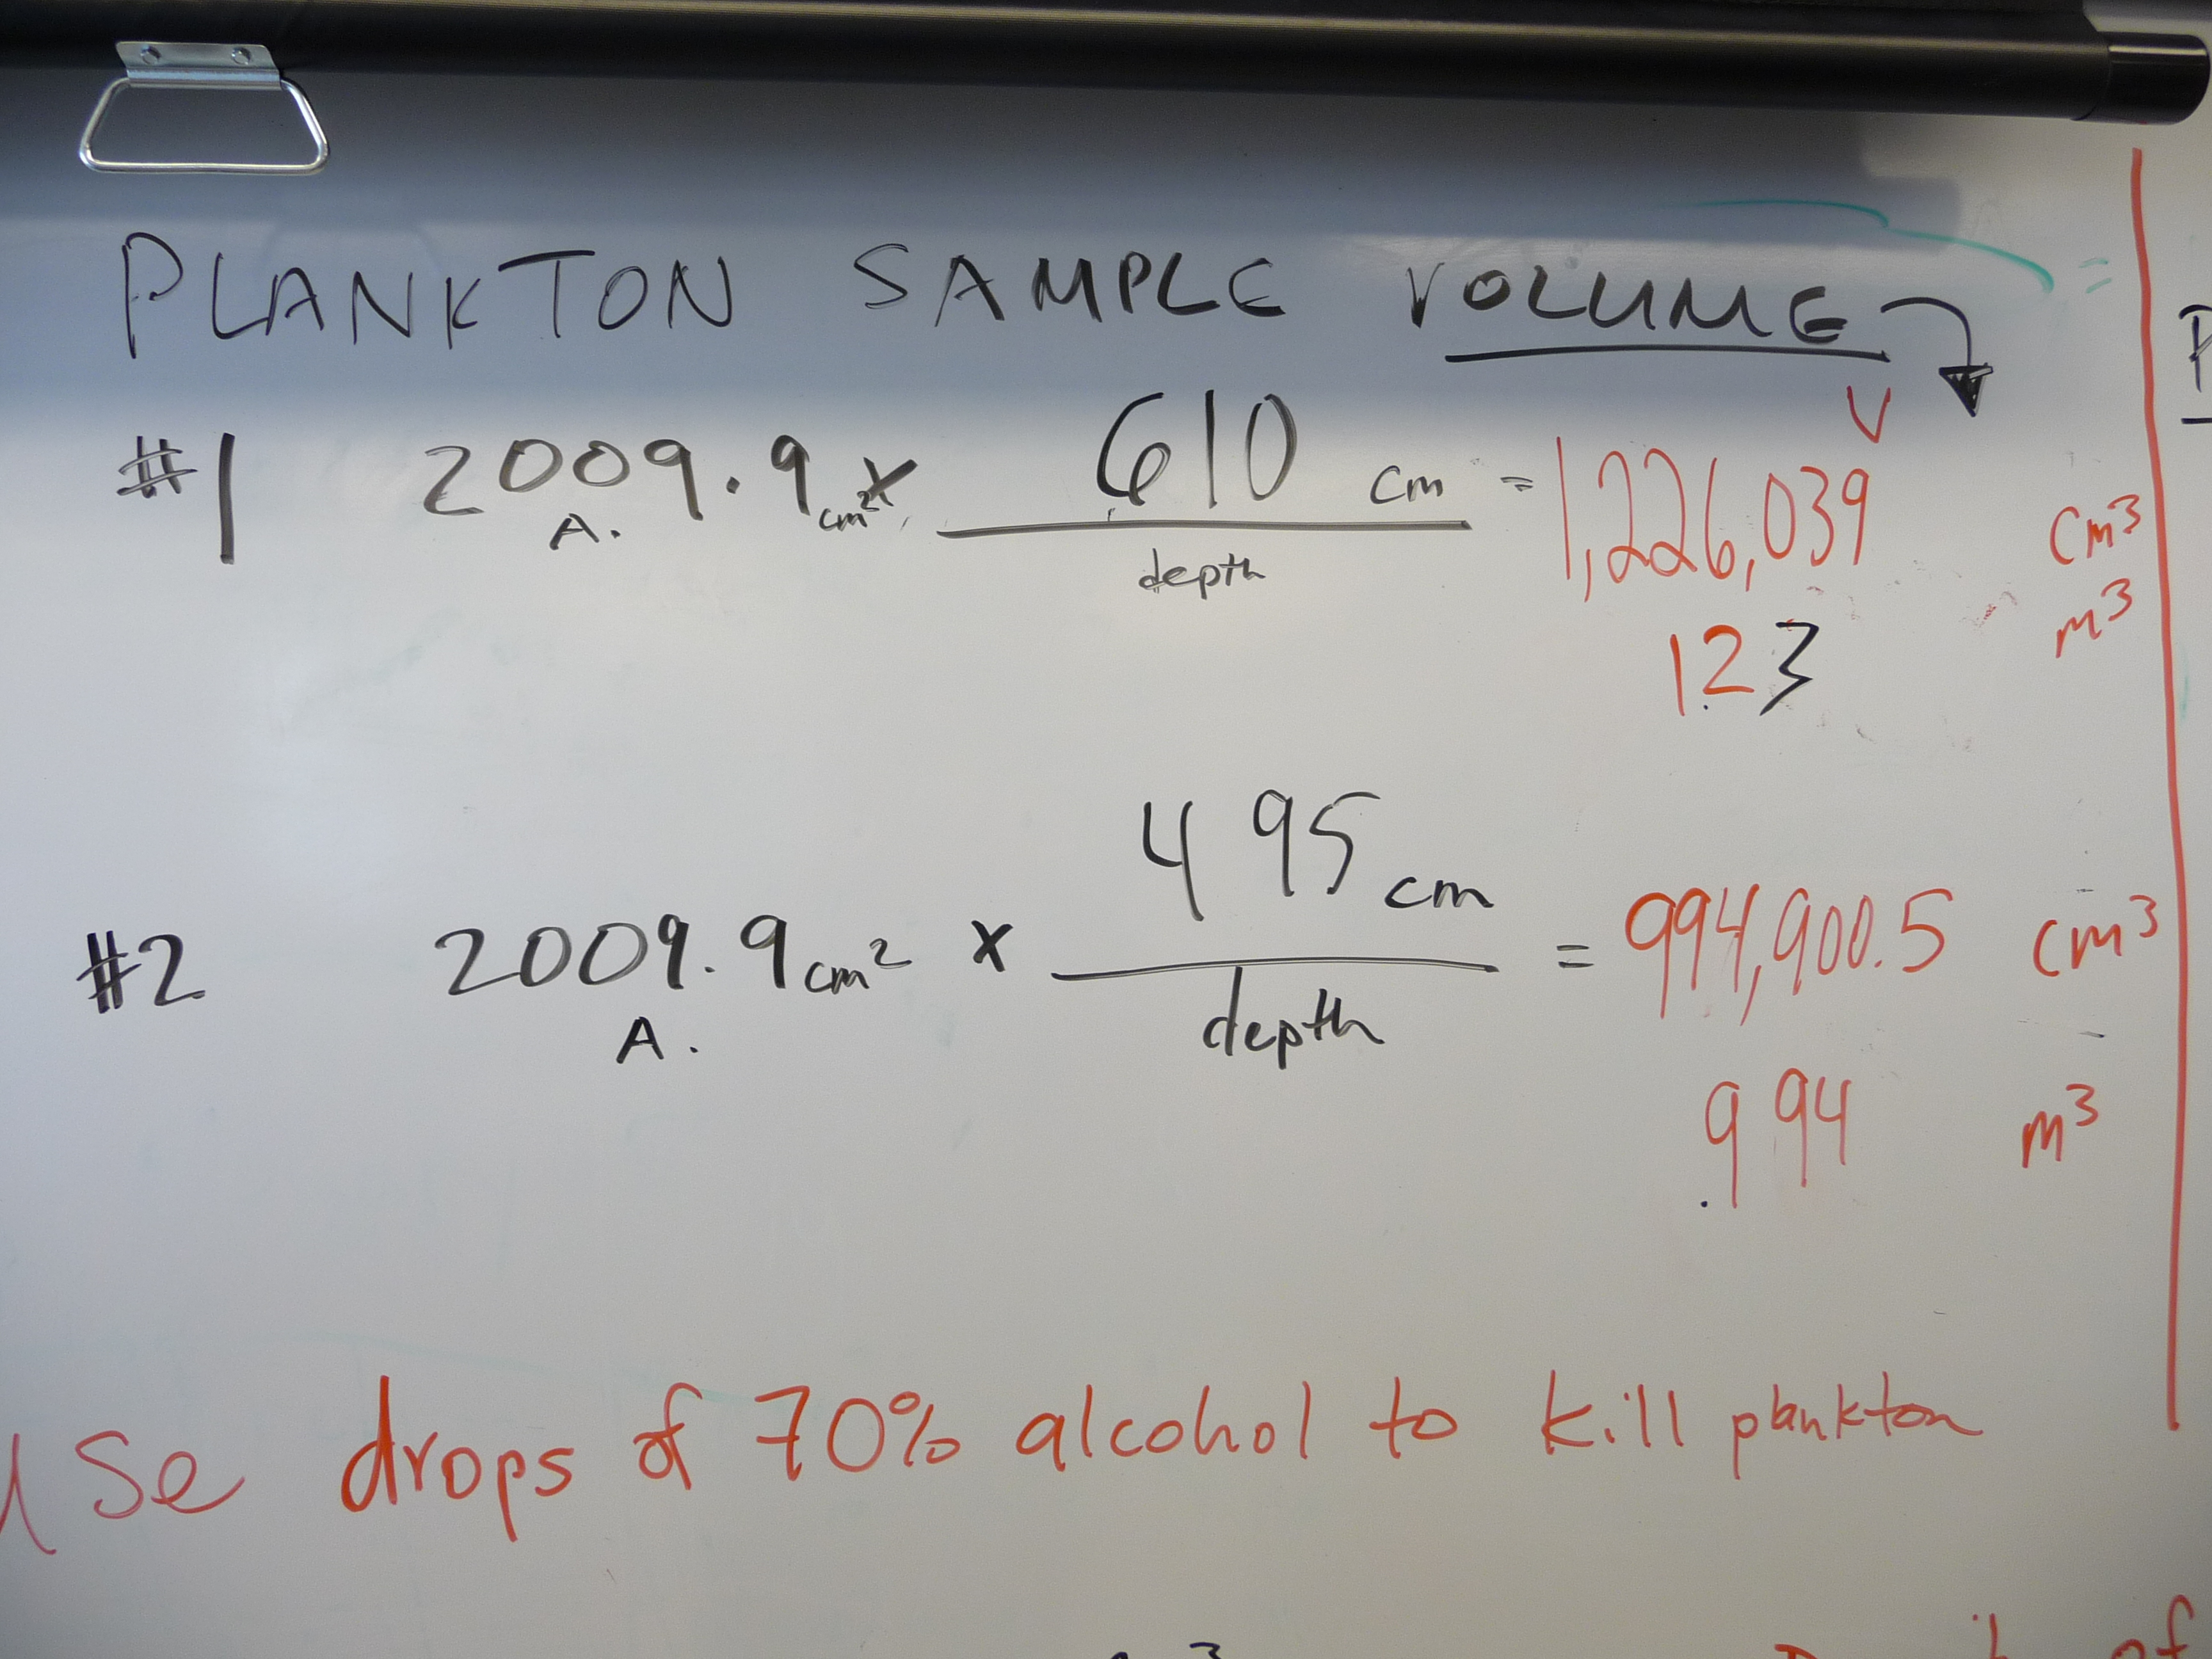 PLANKTON SAMPLE VOLUME
V
#1 2009.9 cm² x 610 cm = 1,226,039 cm³
A. depth
1.23 m³
#2 2009.9 cm² x 495 cm = 994,900.5 cm³
A. depth
.994 m³
Use drops of 70% alcohol to kill plankton